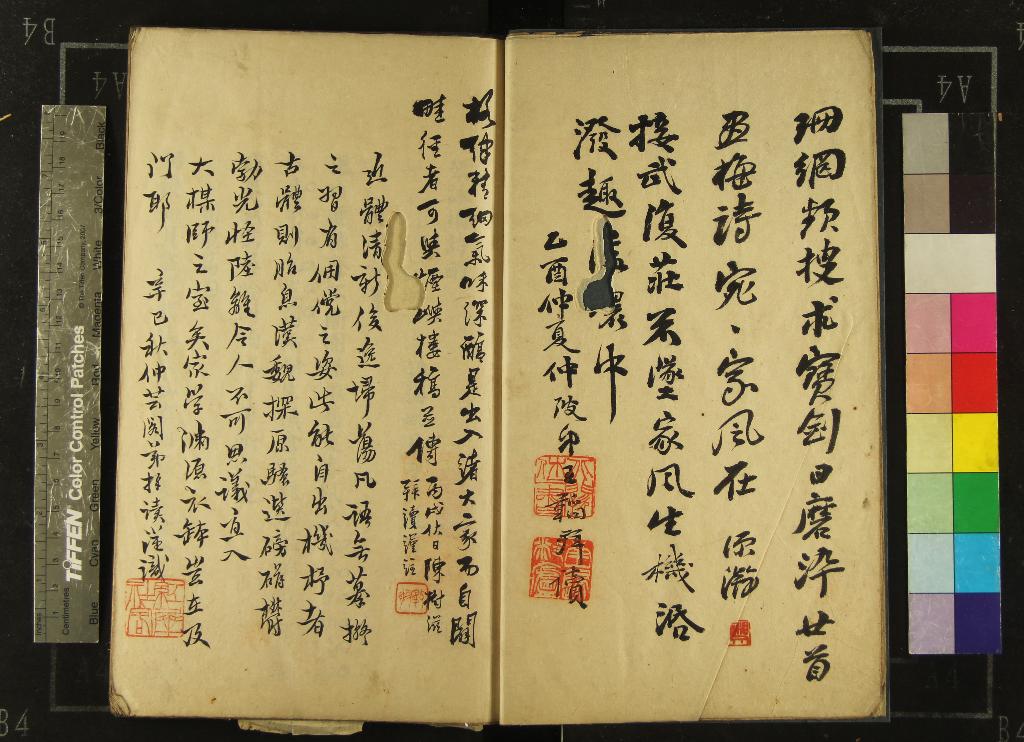 珊網頻搜求寶劍日磨淬廿首
画梅詩宛、家風在 
接武復莊不墜家風生機潑
潑趣溢環中
乙酉仲夏仲 弟王韜拜讀
格律精細氣味深醇是出入諸大家而自闢
畦徑者可與煙嶼樓稿並傳 丙戌伏日陳樹滋
拜讀謹注
近體清新俊逸掃蕩凡語無摹擬
之習有倜儻之姿此能自出機杼者
古體則胎息漢魏探原騷選磅礴鬱
勃光怪陸離令人不可思議直入
大樑師之室矣家學淵源衣缽豈在及
門耶 辛巳秋仲芸閣弟 讀謹識
TIFFEN Color Control Patches
© The Tiffen Company, 2007
Centimetres
Inches
Blue Cyan Green Yellow Red Magenta White 3/Color Black
B4
A4
A4
B4
A4
B4